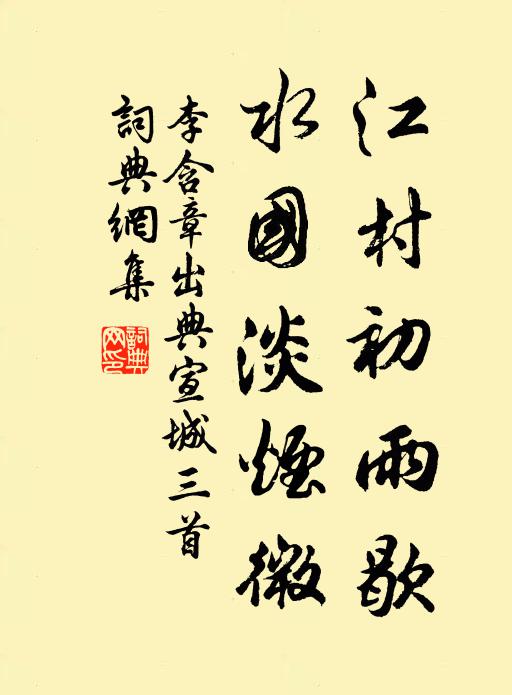 江村初雨歇
水國淡煙微
李含章出典宣城三首
詞典網集
詞典
網印